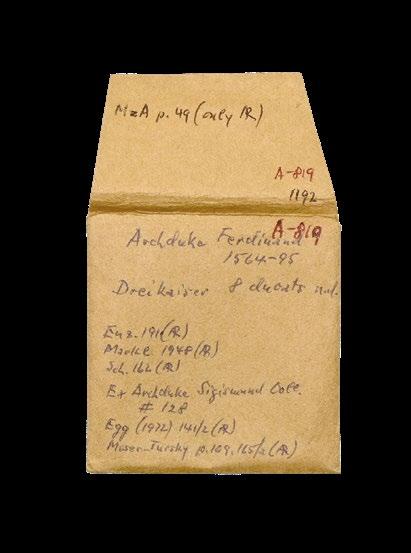 MzA p. 49 (only AR)
A-819
1192
A-819
Archduke Ferdinand
1564-95
Dreikaiser 8 ducats n.d.
Enz. 191 (AR)
Markl. 1948 (AR)
Sch. 164 (AR)
Ex Archduke Sigismund Coll.
# 128
Egg (1972) 141/2 (AR)
Moser-Tursky p. 109, 165/2 (AR)